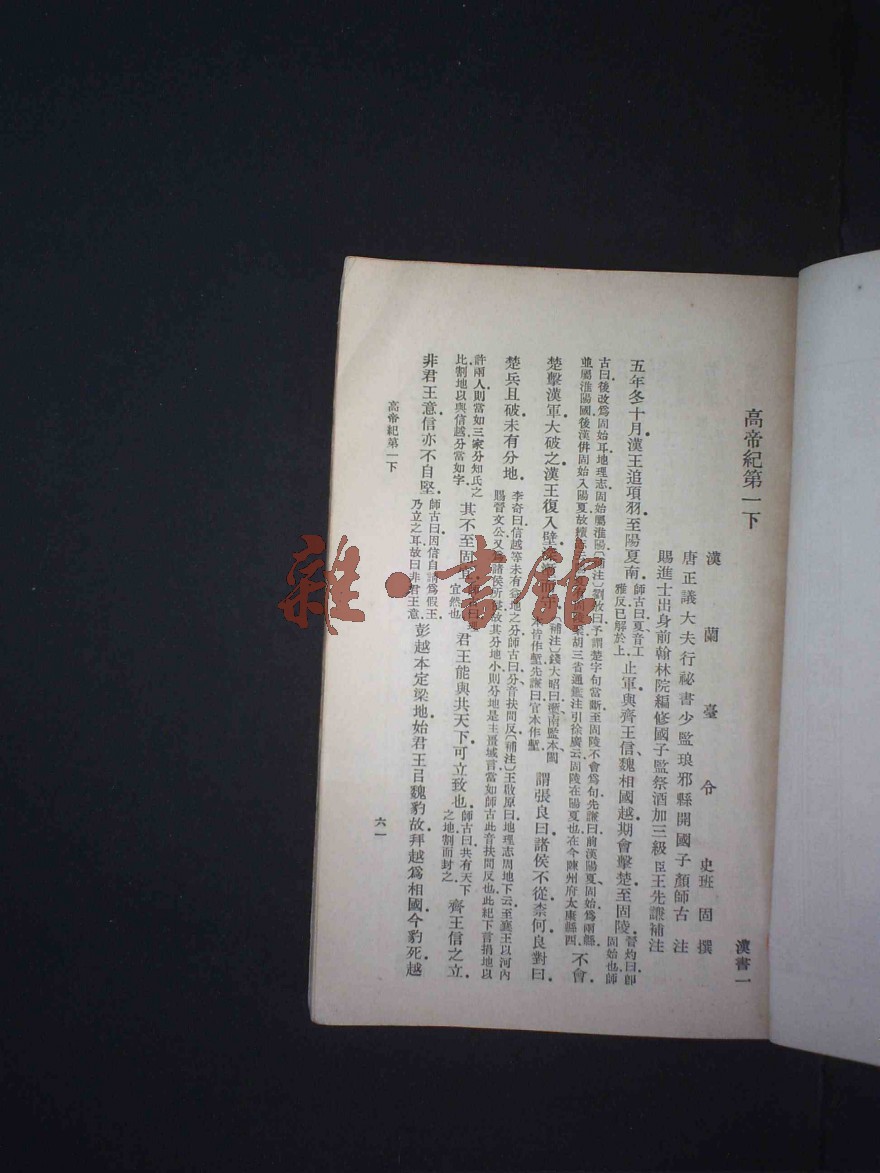 高帝紀第一下
漢書一
漢蘭臺令史班固撰
唐正議大夫行祕書少監琅邪縣開國子顏師古注
賜進士出身前翰林院編修國子監祭酒加三級臣王先謙補注
五年冬十月漢王追項羽至陽夏南師古曰夏音工雅反已解於上止軍與齊王信魏相國越期會擊楚至固陵晉灼曰卽固始也師
古曰後改爲固始耳地理志固始屬淮陽〔補注〕劉攽曰予謂楚字句當斷至固陵不會爲句先謙曰前漢陽夏固始爲兩縣
並屬淮陽國後漢倂固始入陽夏故胡三省通鑑注引徐廣云固陵在陽夏也在今陳州府太康縣西不會
楚擊漢軍大破之漢王復入壁深塹而守〔補注〕錢大昭曰南監本閩本皆作塹先謙曰官本作塹謂張良曰諸侯不從柰何良對曰
楚兵且破未有分地李奇曰信越等未有益地之分師古曰分音扶問反〔補注〕王啟原曰地理志周地下云至襄王以河內
賜晉文公又爲諸侯所侵故其分地小則分地是主畺域言當如師古此音扶問反也此紀下言捐地以
許兩人則當如三家分知氏之比割地以與信越分當如字其不至固宜宜然也君王能與共天下可立致也師古曰共有天下之地割而封之齊王信之立
非君王意信亦不自堅師古曰因信自請爲假王乃立之耳故曰非君王意彭越本定梁地始君王㠯魏豹故拜越爲相國今豹死越
高帝紀第一下
六一
雜·書館